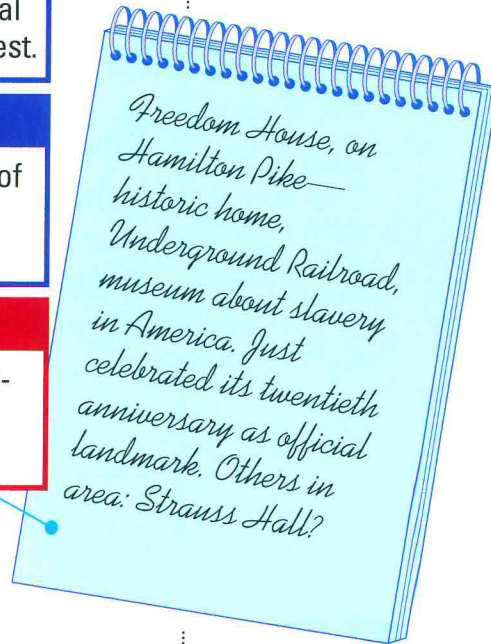 al
est.
of
-
Freedom House, on
Hamilton Pike—
historic home,
Underground Railroad,
museum about slavery
in America. Just
celebrated its twentieth
anniversary as official
landmark. Others in
area: Strauss Hall?